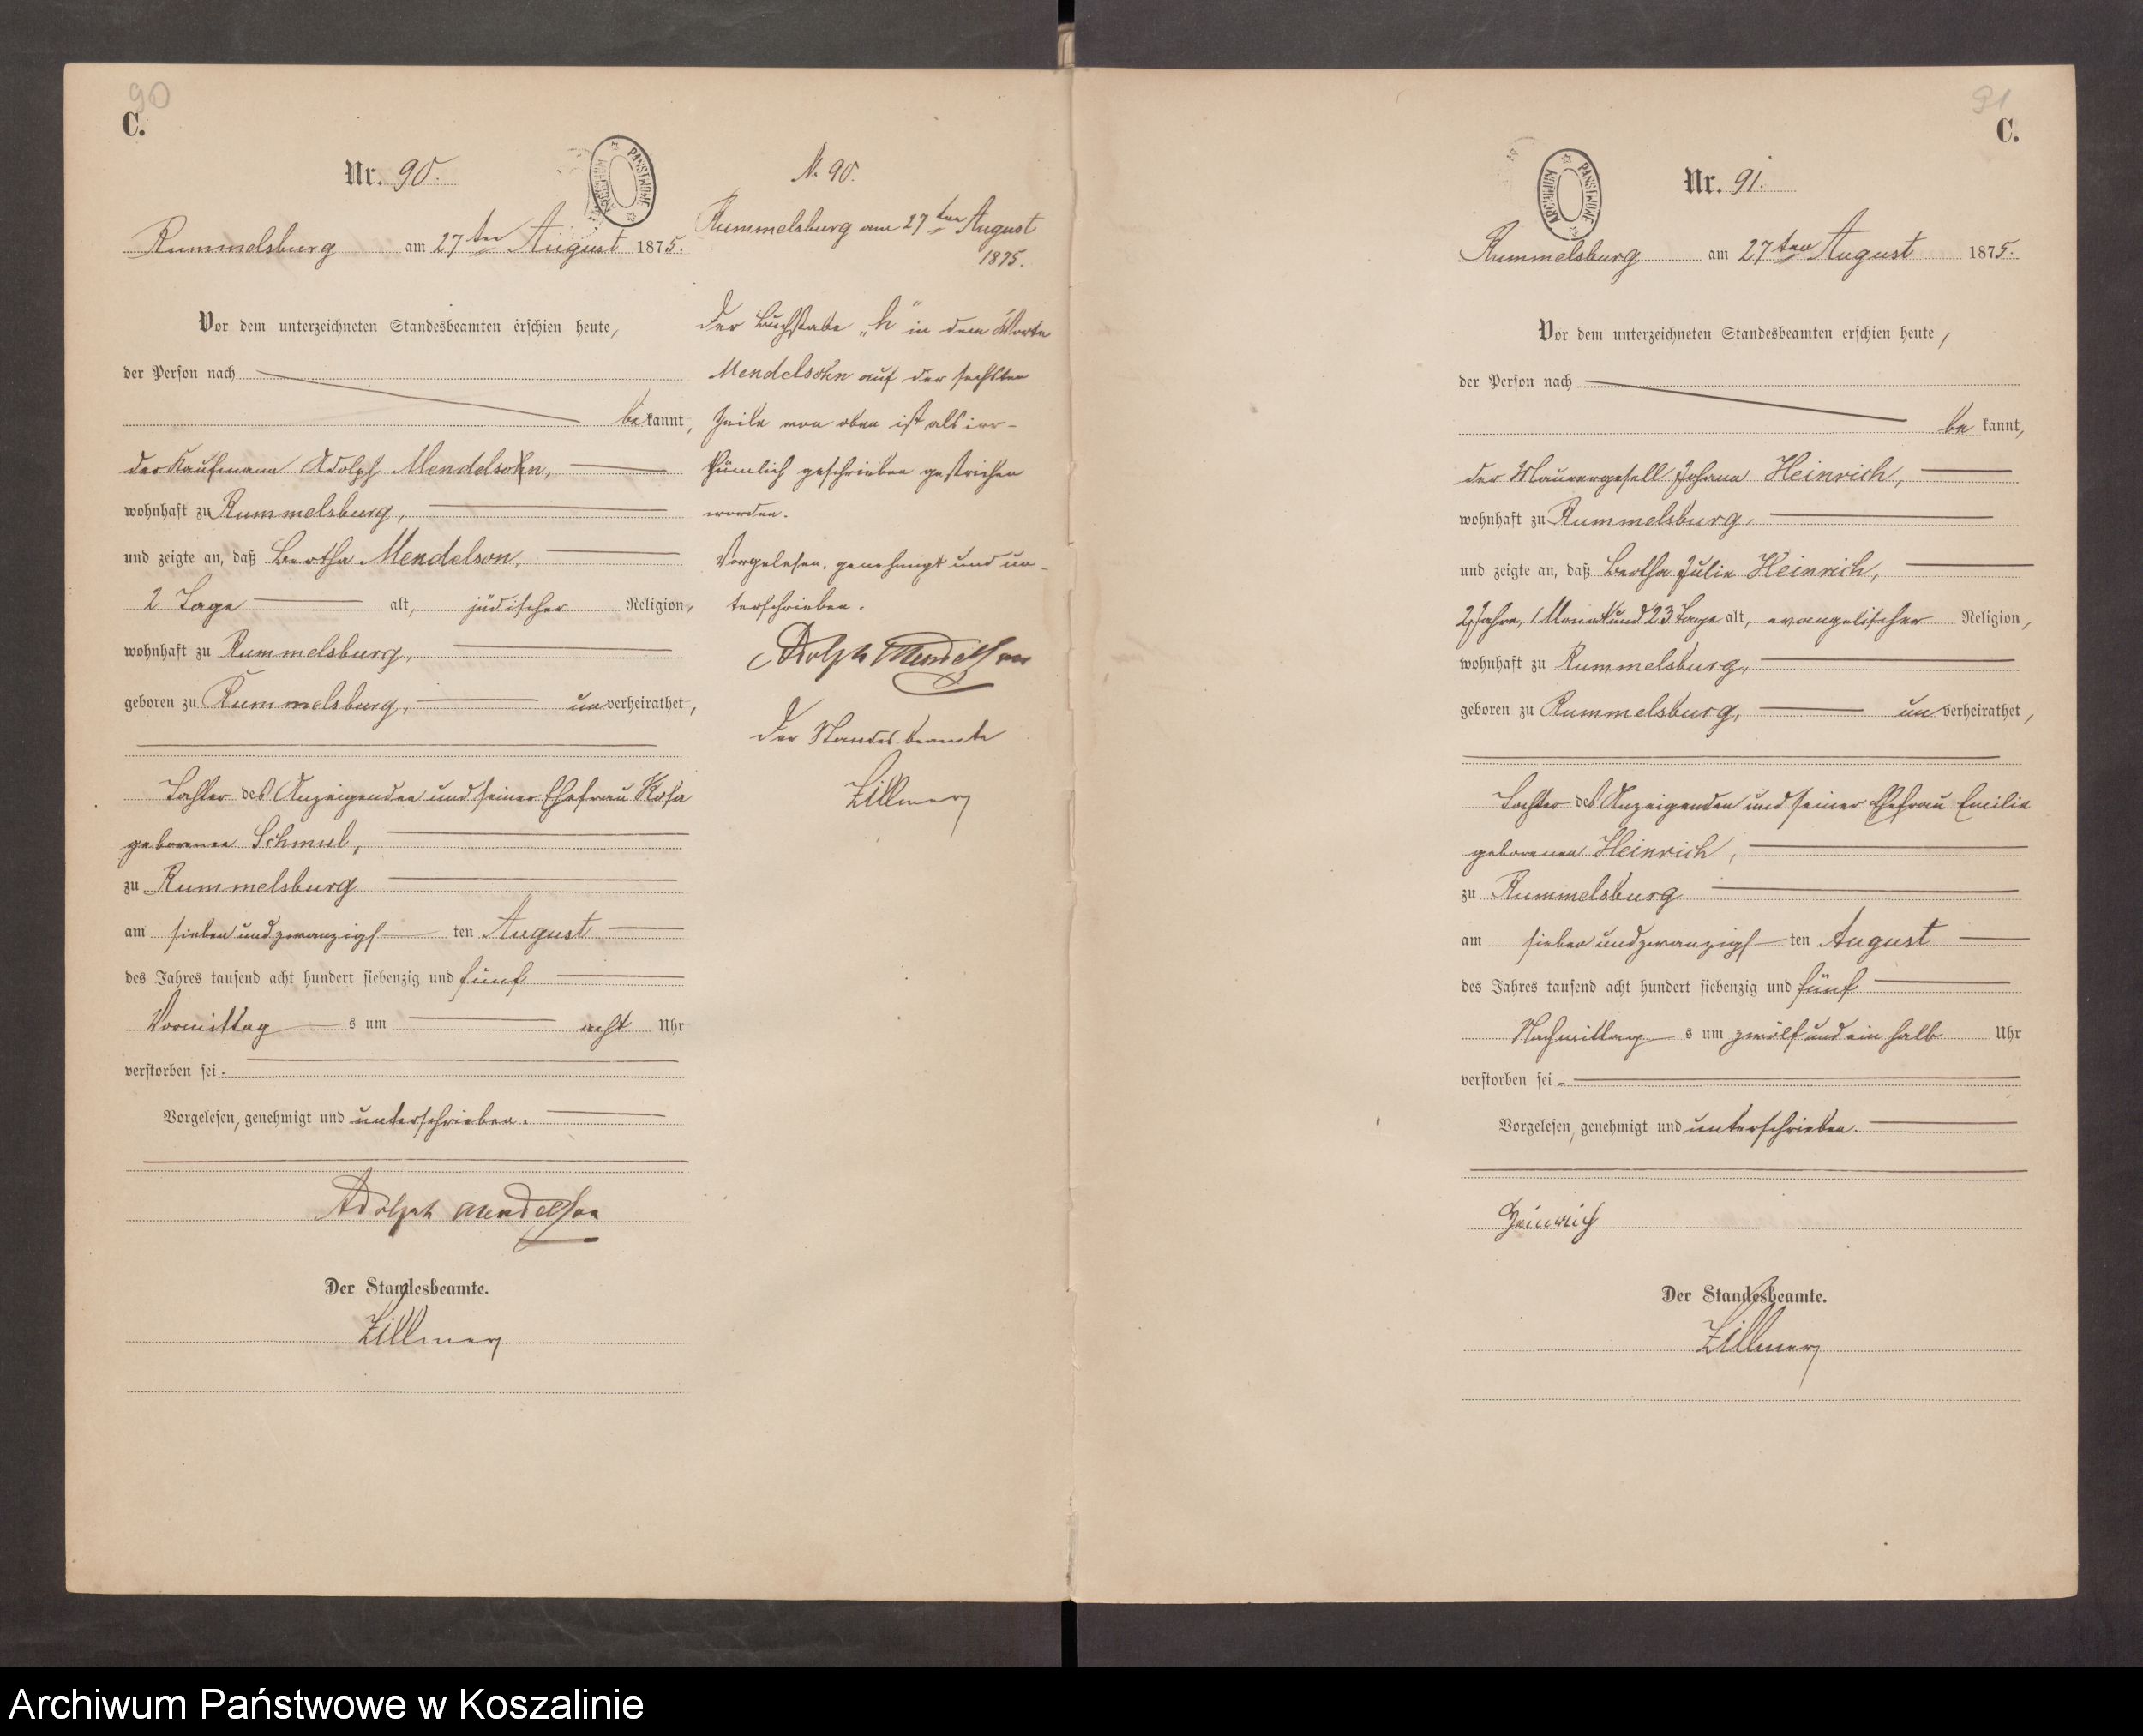 90
C.
Nr. 90.
ARCHIWUM PAŃSTWOWE
Rummelsburg am 27ten August 1875.
Vor dem unterzeichneten Standesbeamten erschien heute,
der Person nach
bekannt,
der Kaufmann Adolph Mendelsohn,
wohnhaft zu Rummelsburg,
und zeigte an, daß Bertha Mendelson,
2 Tage alt, jüdischer Religion,
wohnhaft zu Rummelsburg,
geboren zu Rummelsburg, unverheirathet,
Tochter des Anzeigenden und seiner Ehefrau Rosa
geborenen Schmul,
zu Rummelsburg
am sieben und zwanzigsten August
des Jahres tausend acht hundert siebenzig und fünf
Vormittags um acht Uhr
verstorben sei.
Vorgelesen, genehmigt und unterschrieben.
Adolph Mendelson
Der Standesbeamte.
Zillmer
N. 90.
Rummelsburg am 27ten August
1875.
Der Buchstabe „h" in dem Worte
Mendelsohn auf der sechsten
Zeile von oben ist als irr-
thümlich geschrieben gestrichen
worden.
Vorgelesen, genehmigt und un-
terschrieben.
Adolph Mendelson
Der Standesbeamte
Zillmer
91
C.
Nr. 91.
ARCHIWUM PAŃSTWOWE
Rummelsburg am 27ten August 1875.
Vor dem unterzeichneten Standesbeamten erschien heute,
der Person nach
bekannt,
der Maurergesell Johann Heinrich,
wohnhaft zu Rummelsburg,
und zeigte an, daß Bertha Julie Heinrich,
2 Jahre, 1 Monat und 23 Tage alt, evangelischer Religion,
wohnhaft zu Rummelsburg,
geboren zu Rummelsburg, unverheirathet,
Tochter des Anzeigenden und seiner Ehefrau Emilie
geborenen Heinrich,
zu Rummelsburg
am sieben und zwanzigsten August
des Jahres tausend acht hundert siebenzig und fünf
Nachmittags um zwölf und ein halb Uhr
verstorben sei.
Vorgelesen, genehmigt und unterschrieben.
Heinrich
Der Standesbeamte.
Zillmer
Archiwum Państwowe w Koszalinie